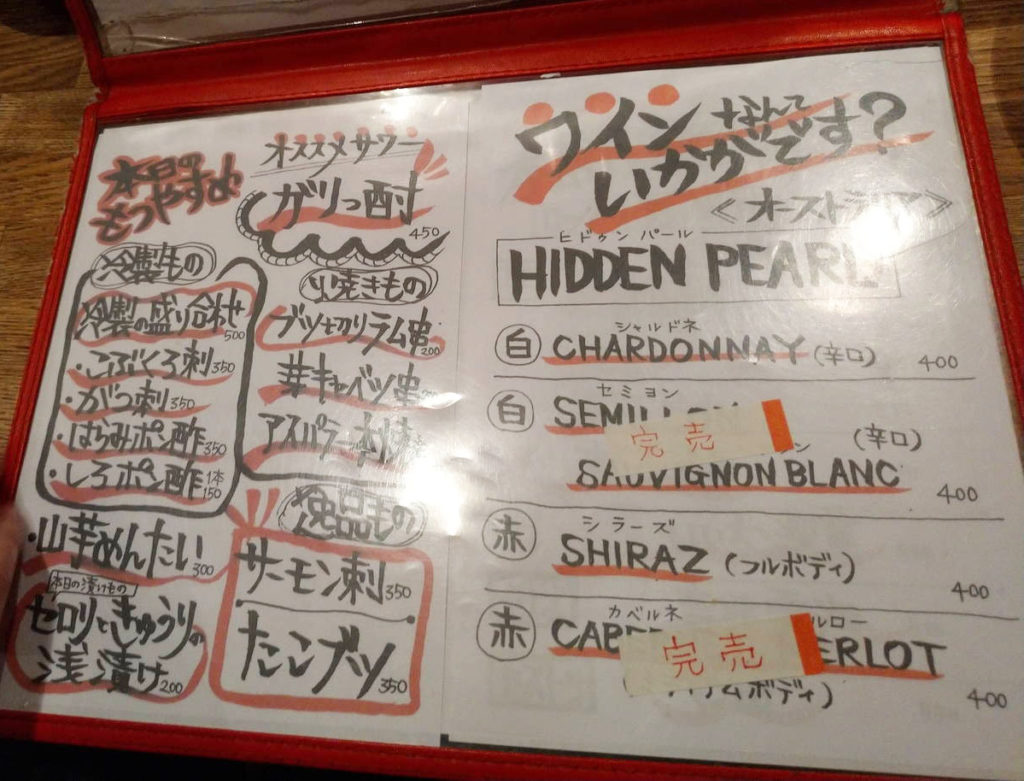 本日の
もつやすめ
冷製もの
冷製の盛り合わせ 500
・こぶくろ刺 350
・がつ刺 350
・はらみポン酢 350
・しろポン酢 1本 150
・山芋めんたい 300
本日の漬けもの
セロリときゅうりの
浅漬け 200
オススメサワー
ガリっ酎
450
焼きもの
ブツ切りラム串 200
芽キャベツ串
アスパラ
逸品もの
サーモン刺 350
たこブツ 350
ワインなんて
いかがです?
≪オーストラリア≫
ヒドゥン パール
HIDDEN PEARL
白 シャルドネ
CHARDONNAY (辛口) 400
白 セミヨン
SEMILLON
完売
(辛口)
SAUVIGNON BLANC 400
赤 シラーズ
SHIRAZ (フルボディ) 400
赤 カベルネ ルロー
CABE ERLOT
完売
ィアムボディ) 400